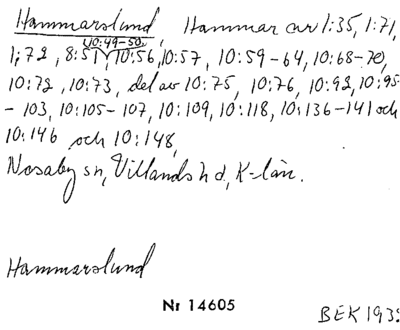 Hammarslund, Hammar av 1:35, 1:71,
10:49-50,
1:72, 8:51, 10:56, 10:57, 10:59-64, 10:68-70,
10:72, 10:73, del av 10:75, 10:76, 10:92, 10:95
- 103, 10:105-107, 10:109, 10:118, 10:136-141 och
10:146 och 10:148,
Nosaby sn, Villands hd, K-län.
Hammarslund
Nr 14605
BEK 193